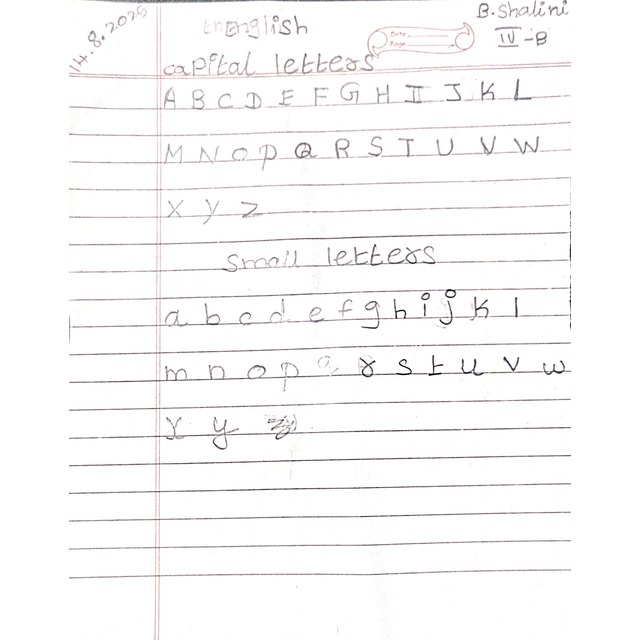 14.8.2025
English
B.Shalini
IV-B
Date
Page
capital letters
A B C D E F G H I J K L
M N O P Q R S T U V W
X y z
Small letters
a b c d e f g h i j k l
m n o p q r s t u v w
x y z